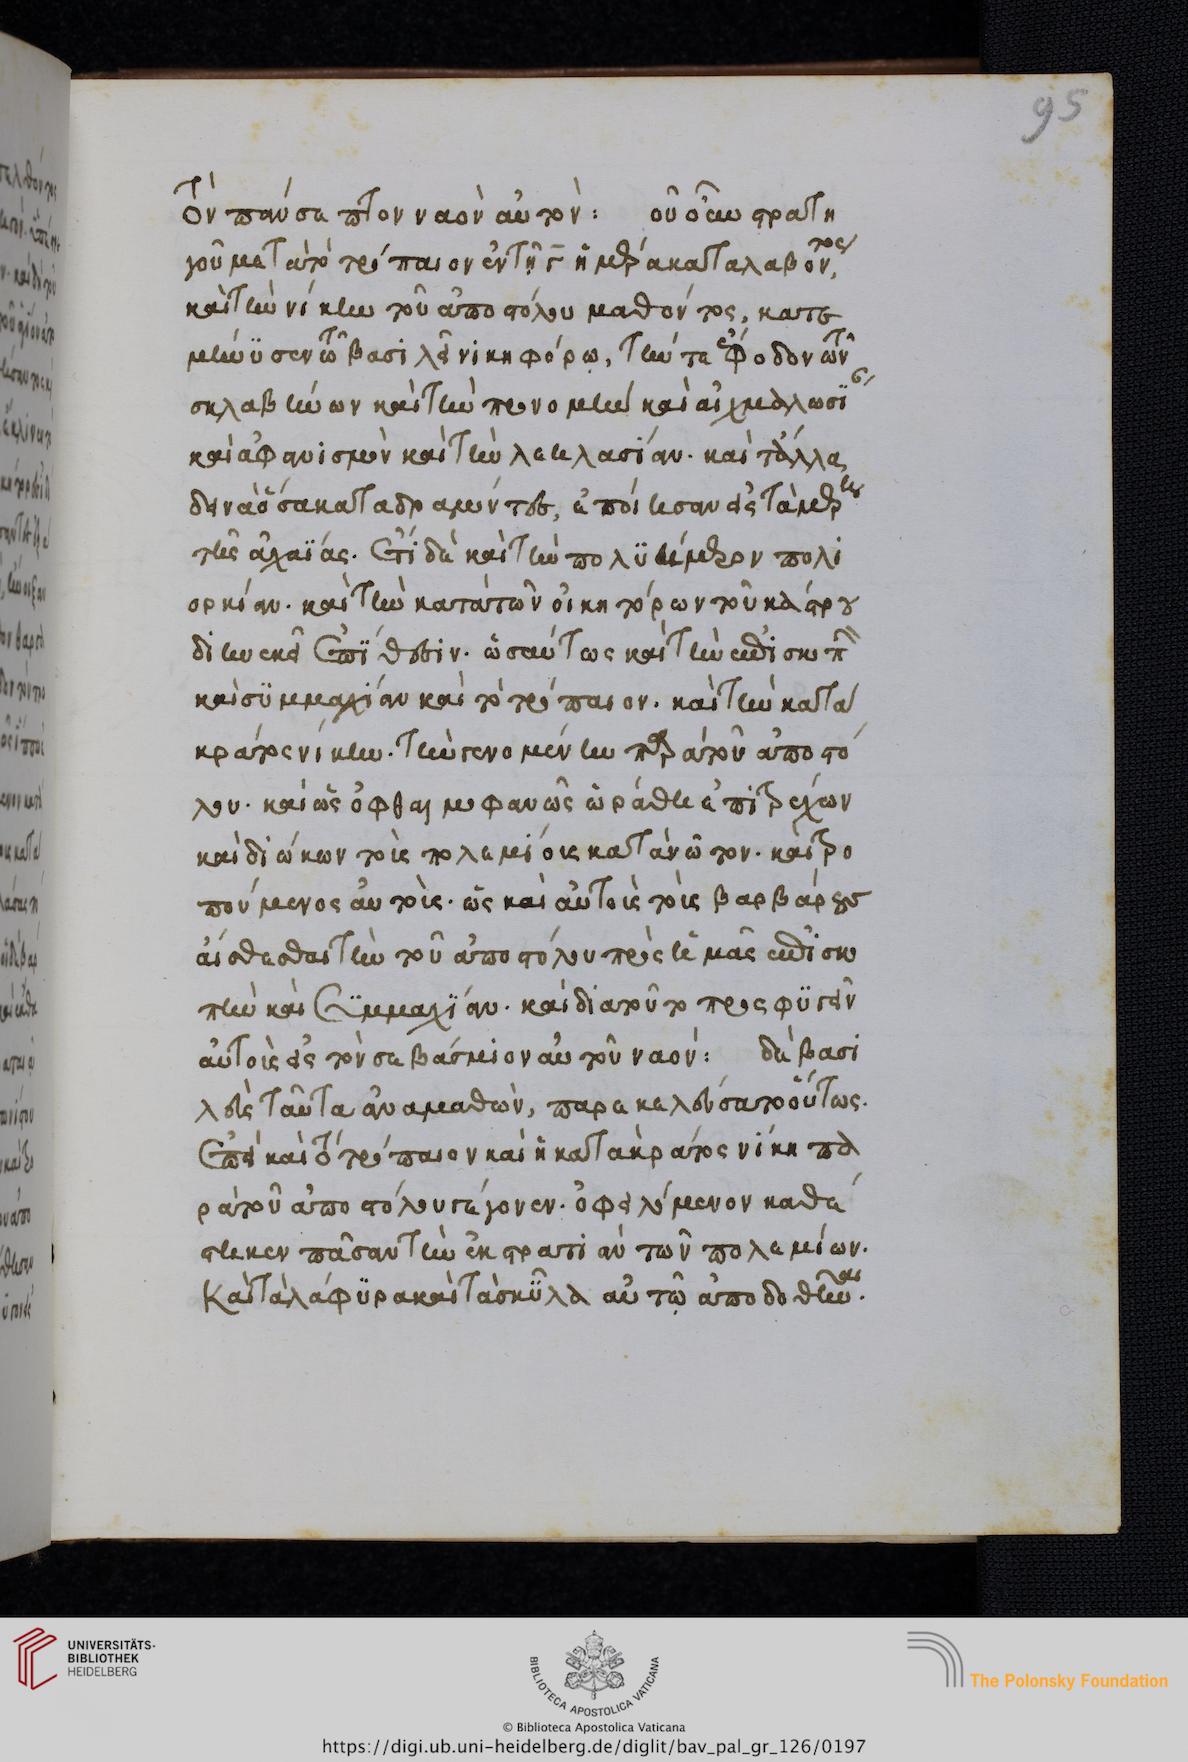 95
τὸν πάνσεπτον ναὸν αὐτοῦ: τοῦ οὖν στρατη
γοῦ μετὰ τὸ τρόπαιον ἐν τῇ γ ἡμέρα καταλαβόντος,
καὶ τὴν νίκην τοῦ ἀποστόλου μαθόντος, κατε
μήνϋσεν τῶ βασιλεῖ νικηφόρω, τήν τε ἔφοδον τῶν
σκλαβήνων καὶ τὴν προνομὴν καὶ αἰχμαλωσΐ
καὶ ἀφανισμὸν καὶ τὴν λεηλασίαν. καὶ τἄλλα
δεινὰ ὅσα καταδραμόντες, ἐποίησαν εἰς τὰ μέρη
τῆς ἀχαΐας. ἔτι δὲ καὶ τὴν πολϋήμερον πολι
ορκίαν. καὶ τὴν κατὰ τῶν οἰκητόρων τοῦ κάστρου
διηνεκῆ ἐπΐθεσιν. ὡσαύτως καὶ τὴν ἐπισκοπὴν
καὶ σϋμμαχίαν καὶ τὸ τρόπαιον. καὶ τὴν κατὰ
κράτος νίκην. τὴν γενομένην παρὰ τοῦ ἀποστό
λου. καὶ ὡς ὀφθαλμοφανῶς ὡράθη ἐπιτρέχων
καὶ διώκων τοὺς πολεμίους κατὰ νῶτον. καὶ τρο
πούμενος αὐτούς. ὡς καὶ αὐτοὺς τοὺς βαρβάρους
αἰσθέσθαι τὴν τοῦ ἀποστόλου πρὸς ἡμᾶς ἐπισκο
πὴν καὶ σϋμμαχΐαν. καὶ διὰ τοῦτο προσφϋγεῖν
αὐτοὺς εἰς τὸν σεβάσμιον αὐτοῦ ναόν: ὁ δὲ βασι
λεὺς ταῦτα ἀναμαθὼν, παρεκελεύσατο οὕτως.
ἐπεὶ καὶ τὸ τρόπαιον καὶ ἡ κατὰ κράτος νίκη πα
ρὰ τοῦ ἀποστόλου γέγονεν. ὀφειλόμενον καθέ
στηκεν πᾶσαν τὴν ἐκστρατιὰν τῶν πολεμίων.
Καὶ τὰ λάφϋρα καὶ τὰ σκῦλα αὐτῷ ἀποδοθῆναι.
UNIVERSITÄTS-
BIBLIOTHEK
HEIDELBERG
BIBLIOTECA APOSTOLICA VATICANA
The Polonsky Foundation
© Biblioteca Apostolica Vaticana
https://digi.ub.uni-heidelberg.de/diglit/bav_pal_gr_126/0197